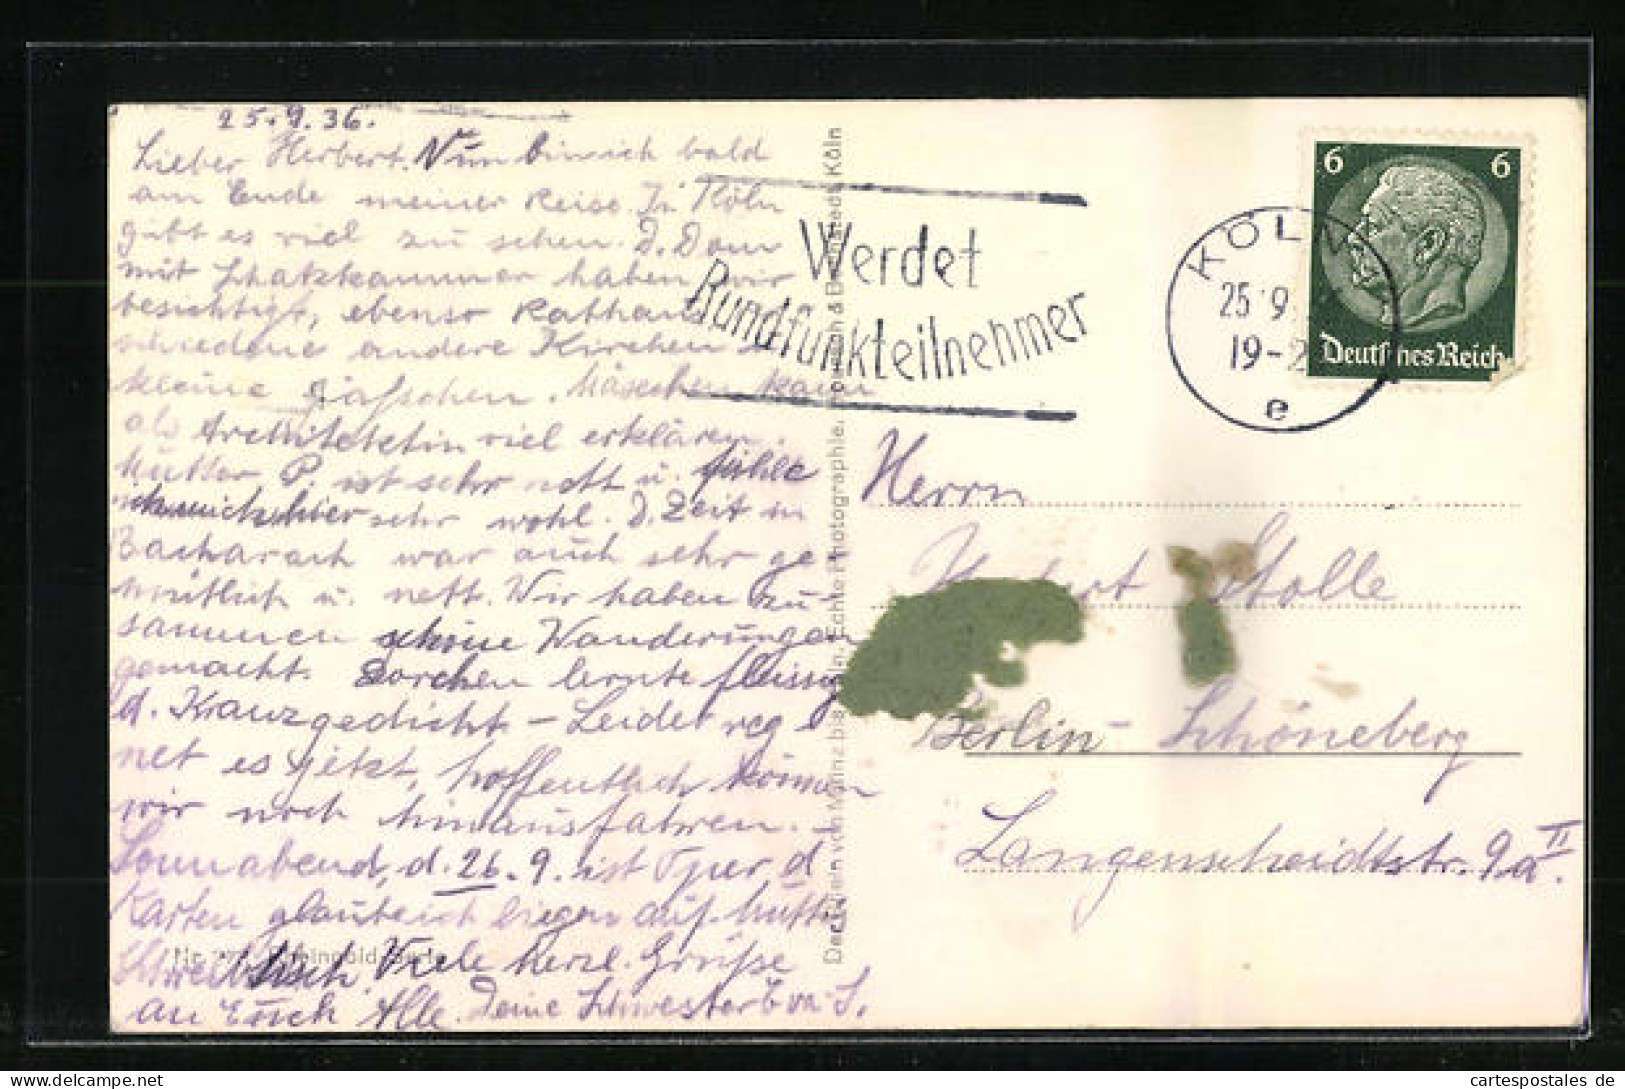 25.9.36.
Lieber Herbert. Nun bin ich bald
am Ende meiner Reise. In Köln
gibt es viel zu sehen. D. Dom
mit Schatzkammer haben wir
besichtigt, ebenso Rathaus
schiedene andere Kirchen u.
kleine Gäßchen. Mäschen kann
als Architektin viel erklären.
Mutter P. ist sehr nett u. fühle
ich mich hier sehr wohl. D. Zeit in
Bacharach war auch sehr ge
mütlich u. nett. Wir haben zu-
sammen schöne Wanderungen
gemacht. Dorchen lernte fleissig
d. Kranzgedicht - Leider reg
net es jetzt, hoffentlich können
wir noch hinausfahren. -
Sonnabend, d. 26.9. ist Oper, d
Karten glaube ich liegen auf Mutti
Schreibtisch. Viele herzl. Grüße
an Euch Alle. Deine Schwester Eva S.
Werdet
Rundfunkteilnehmer
KÖLN
25.9
19-2
e
6 6
Deutsches Reich
Herrn
Herbert Stolle
Berlin - Schöneberg
Langenscheidtstr. 9a II.
cartespostales de